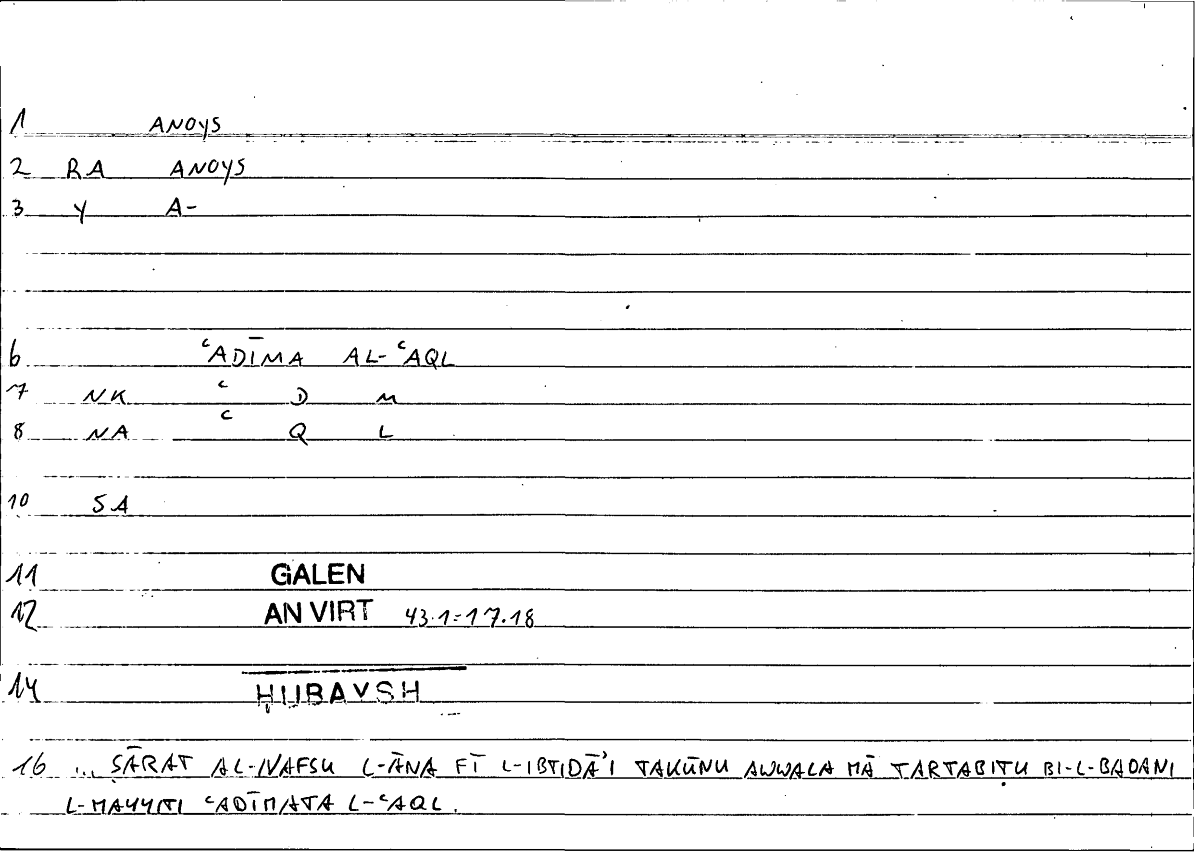 1 ANOYS
2 RA ANOYS
3 Y A-
6 ʿADĪMA AL-ʿAQL
7 NK ʿ D M
8 NA ʿ Q L
10 SA
11 GALEN
12 AN VIRT 43.1=17.18
14 ḤUBAYSH
16 ... ṢĀRAT AL-NAFSU L-ĀNA FĪ L-IBTIDĀʾI TAKŪNU AWWALA MĀ TARTABIṬU BI-L-BADANI
L-MAYYITI ʿADĪMATA L-ʿAQL.